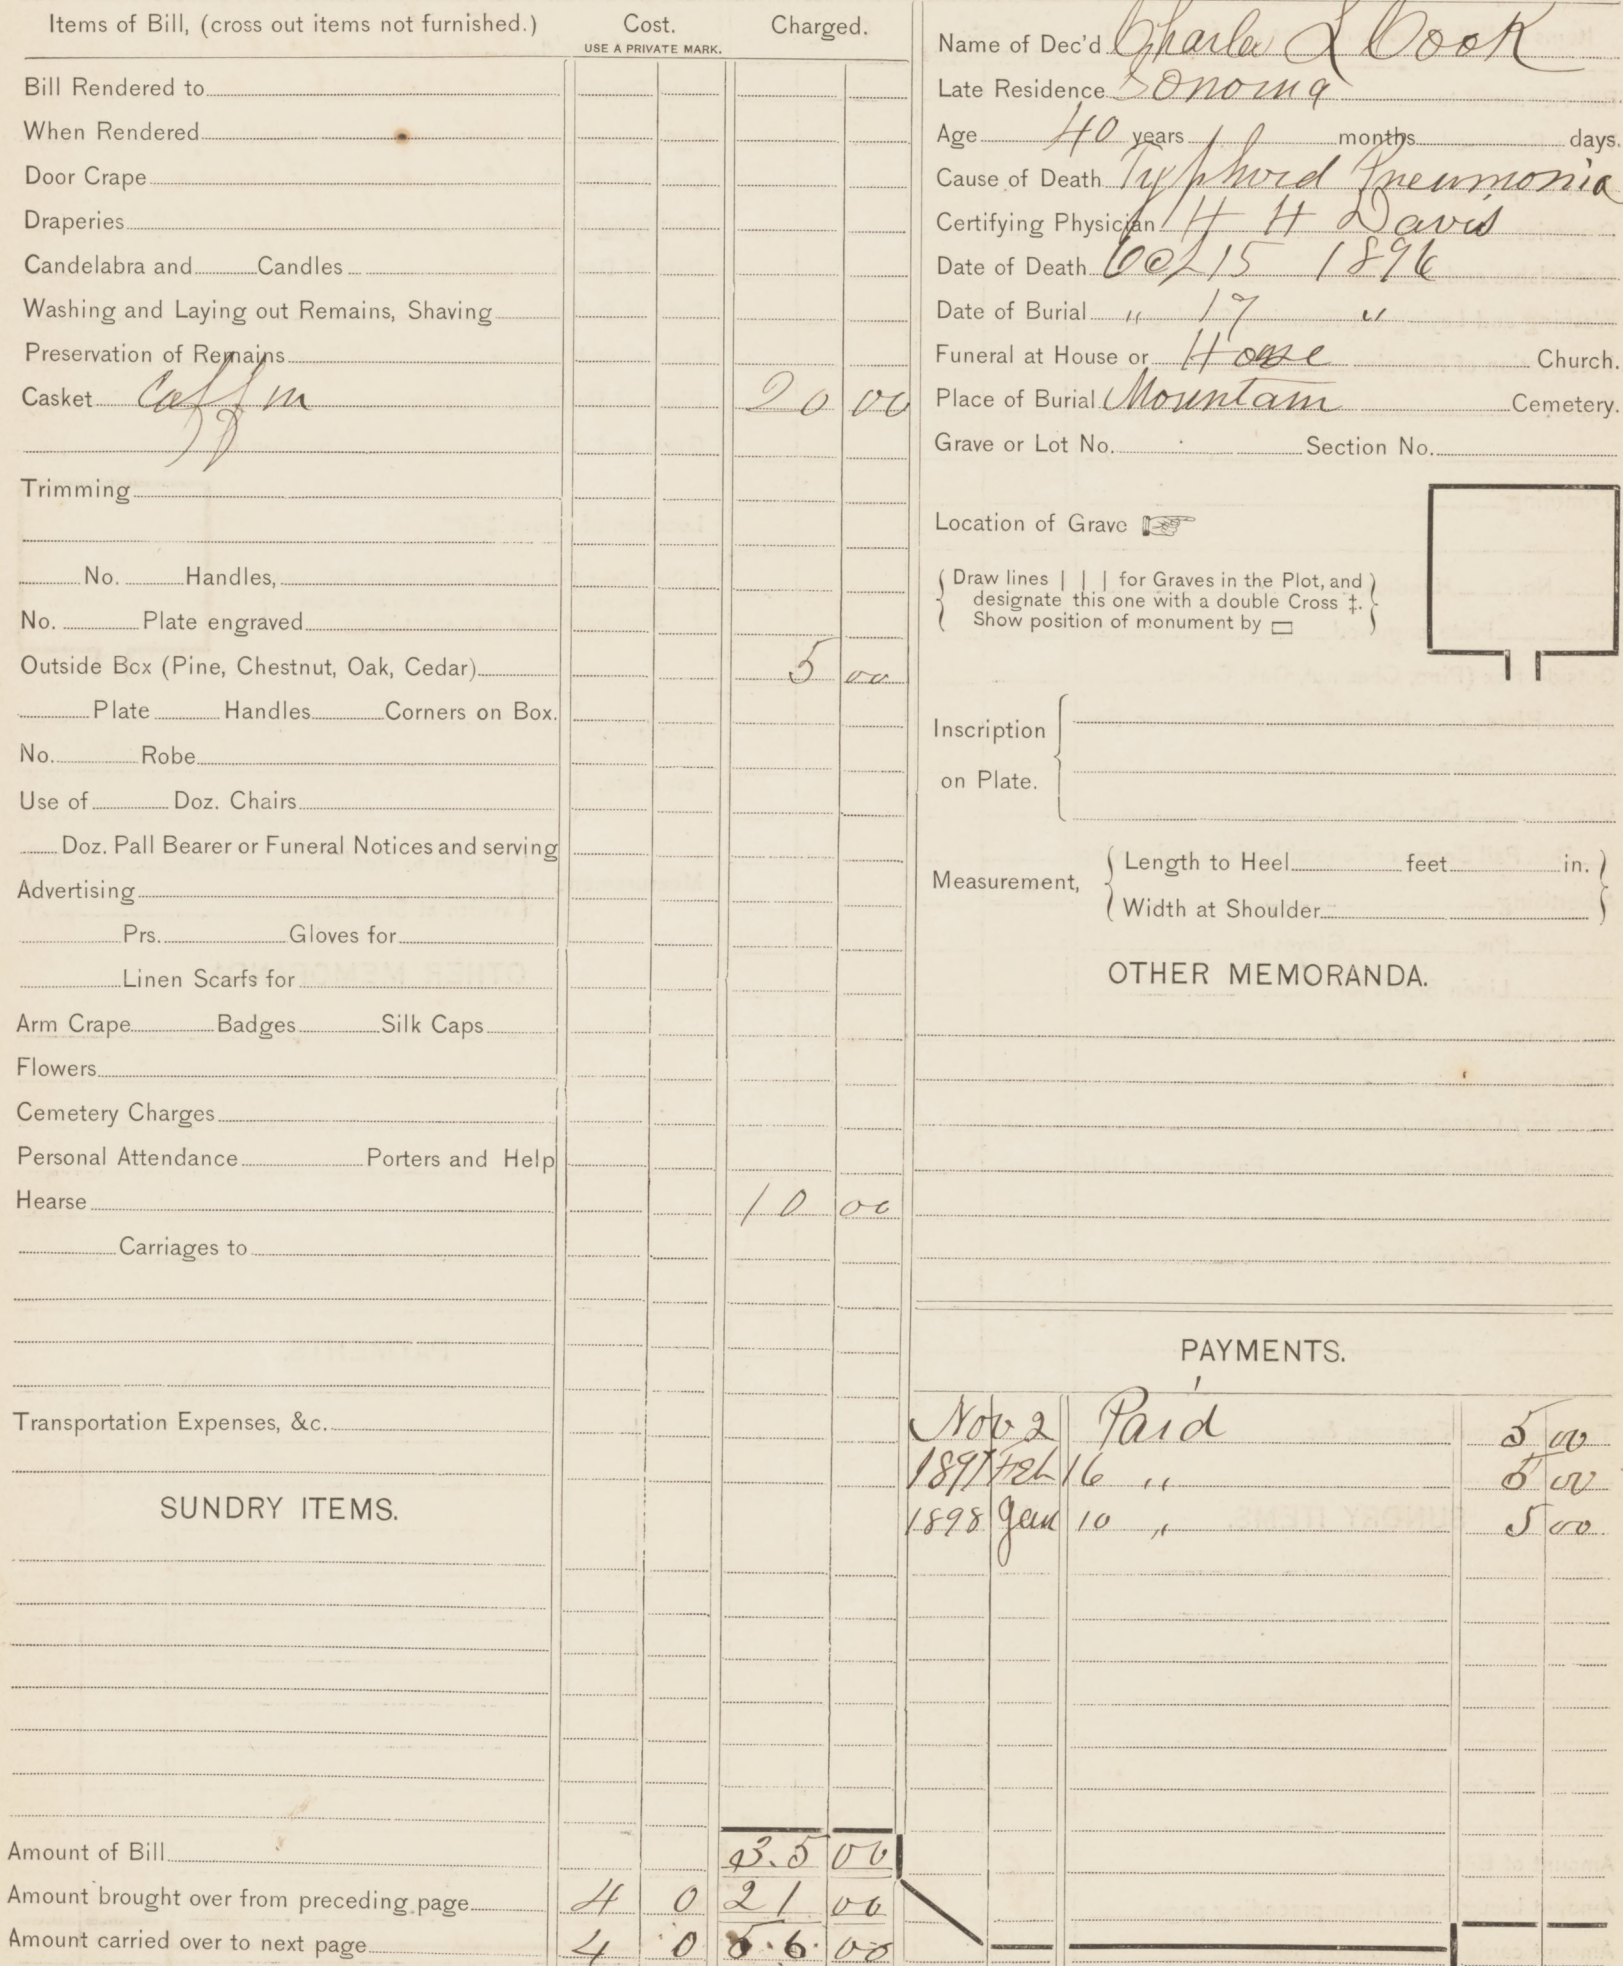 Items of Bill, (cross out items not furnished.) Cost. Charged.
USE A PRIVATE MARK.
Bill Rendered to
When Rendered
Door Crape
Draperies
Candelabra and Candles
Washing and Laying out Remains, Shaving
Preservation of Remains
Casket Coffin 20 00
Trimming
No. Handles,
No. Plate engraved
Outside Box (Pine, Chestnut, Oak, Cedar) 5 00
Plate Handles Corners on Box.
No. Robe
Use of Doz. Chairs
Doz. Pall Bearer or Funeral Notices and serving
Advertising
Prs. Gloves for
Linen Scarfs for
Arm Crape Badges Silk Caps
Flowers
Cemetery Charges
Personal Attendance Porters and Help
Hearse 10 00
Carriages to
Transportation Expenses, &c.
SUNDRY ITEMS.
Amount of Bill 35 00
Amount brought over from preceding page 4 0 21 00
Amount carried over to next page 4 0 56 00
Name of Dec'd Charles L Cook
Late Residence Sonoma
Age 40 years months days.
Cause of Death Typhoid Pneumonia
Certifying Physician H H Davis
Date of Death Oct 15 1896
Date of Burial " 17 "
Funeral at House or House Church.
Place of Burial Mountain Cemetery.
Grave or Lot No. Section No.
Location of Grave ☞
Draw lines | | | for Graves in the Plot, and
designate this one with a double Cross ‡.
Show position of monument by ▭
Inscription
on Plate.
Measurement, Length to Heel feet in.
Width at Shoulder
OTHER MEMORANDA.
PAYMENTS.
Nov 2 Paid 5 00
1897 Feb 16 " 5 00
1898 Jan 10 " 5 00